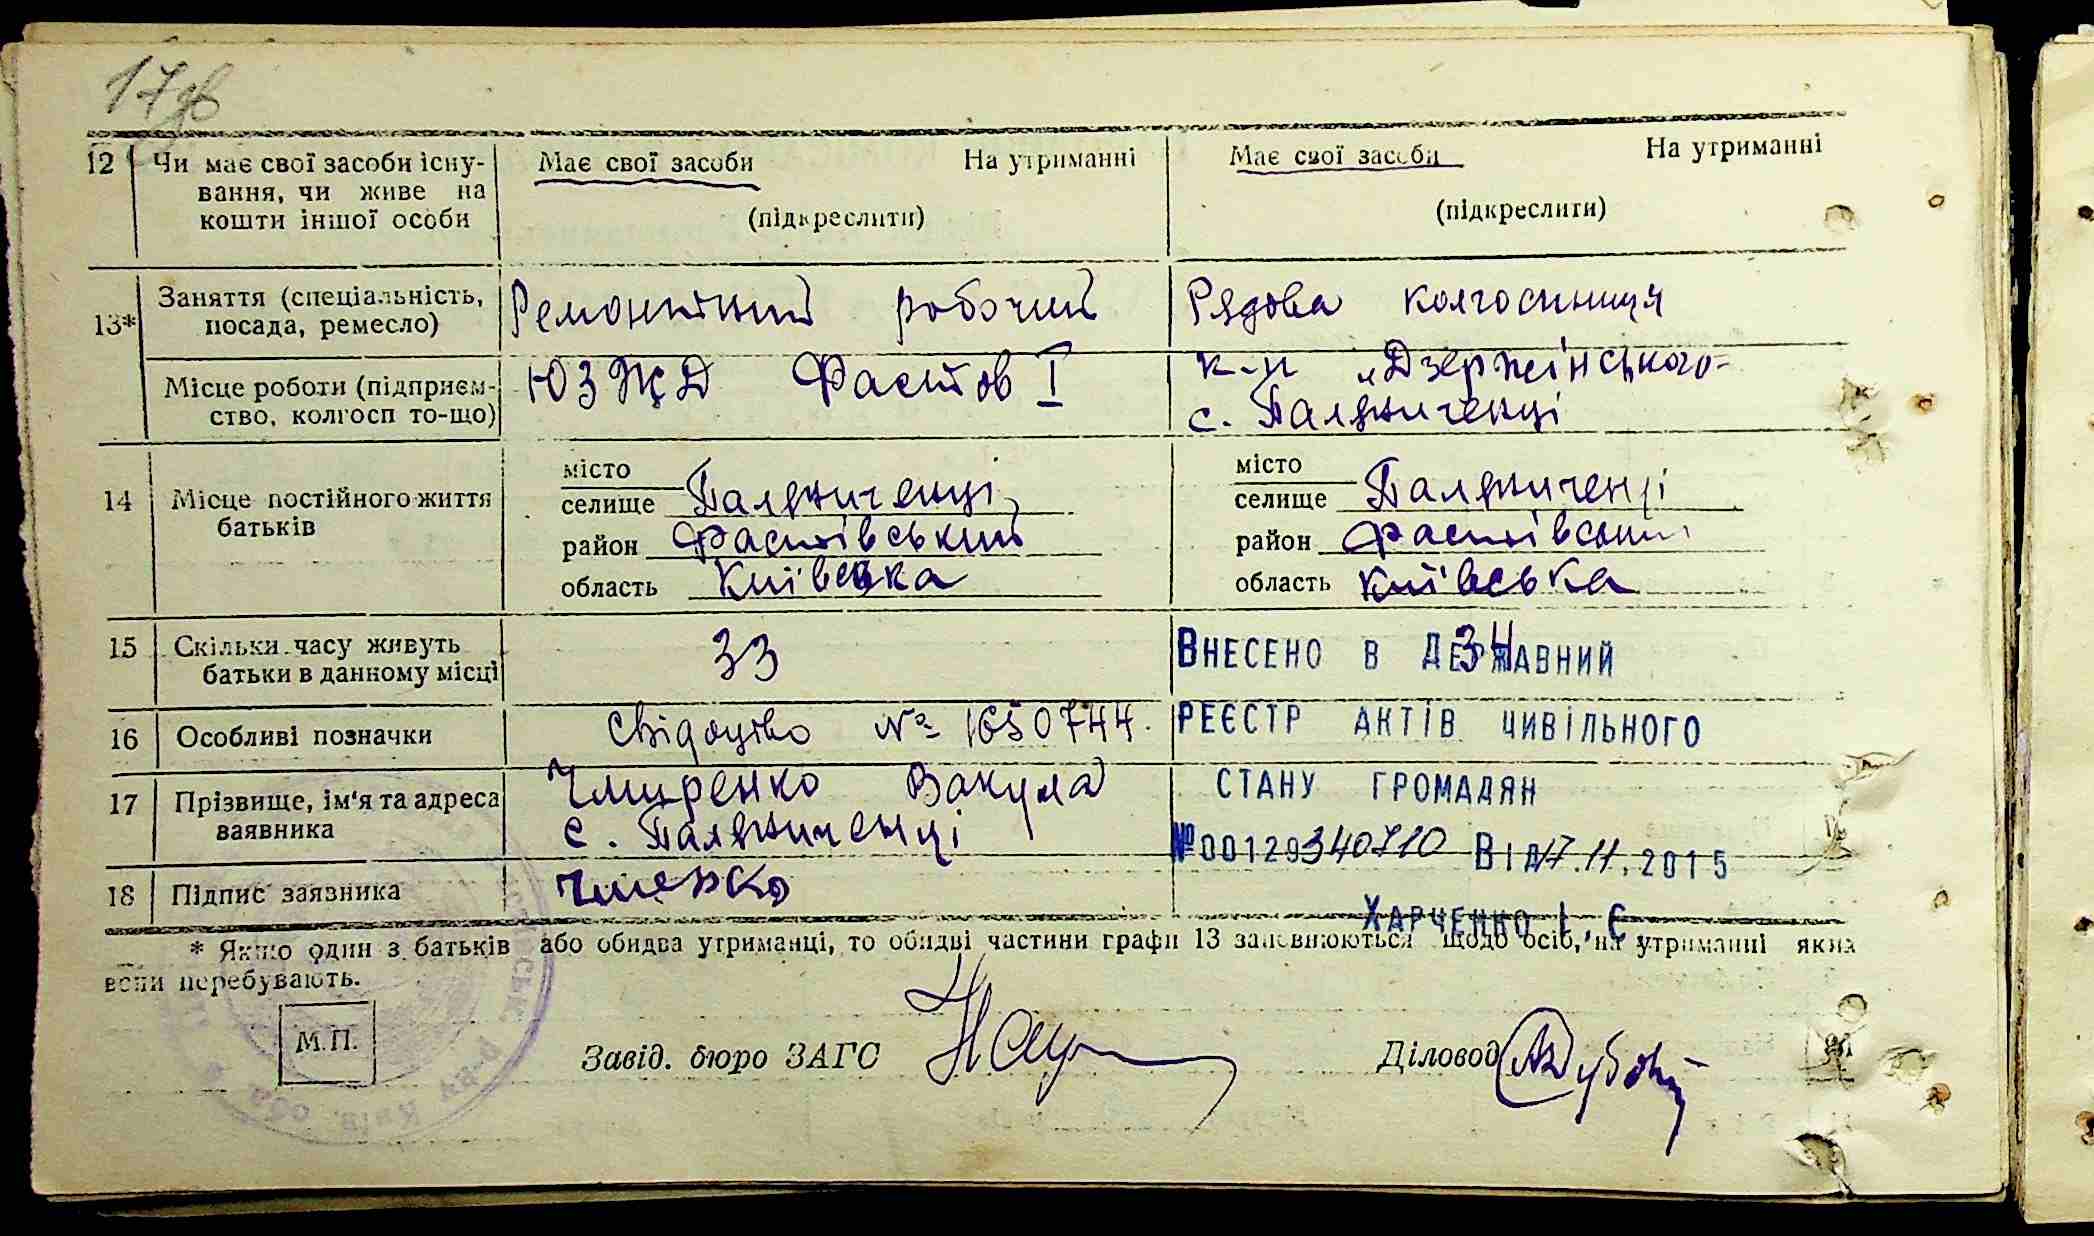 17зв
12 Чи має свої засоби існу-
вання, чи живе на
кошти іншої особи
Має свої засоби На утриманні
(підкреслити)
Має свої засоби На утриманні
(підкреслити)
13* Заняття (спеціальність,
посада, ремесло)
Ремонтний робочий
Рядова колгоспниця
Місце роботи (підприєм-
ство, колгосп то-що)
ЮЗЖД Фастов I
к-п „Дзержінського"
с. Паляниченці
14 Місце постійного життя
батьків
місто
селище Паляниченці,
район Фастівський
область Київська
місто
селище Паляниченці
район Фастівський
область Київська
15 Скільки часу живуть
батьки в данному місці
33
34
16 Особливі позначки
Свідоцтво № 1650744.
17 Прізвище, ім'я та адреса
заявника
Чмиренко Вакула
с. Паляниченці
18 Підпис заявника
ВНЕСЕНО В ДЕРЖАВНИЙ
РЕЄСТР АКТІВ ЦИВІЛЬНОГО
СТАНУ ГРОМАДЯН
№00129340710 ВІД 17.11.2015
ХАРЧЕНКО І.Є.
* Якщо один з батьків або обидва утриманці, то обидві частини графи 13 заповнюються щодо осіб, на утриманні яких
вони перебувають.
М.П.
Завід. бюро ЗАГС
Діловод